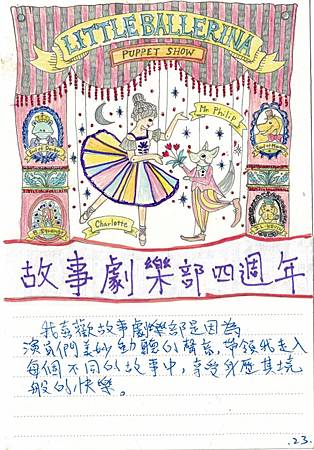 LITTLE BALLERINA
PUPPET SHOW
Mr. Philip
Charlotte
故事劇樂部四週年
我喜歡故事劇樂部是因為
演員們美妙動聽的聲音,帶領我走入
每個不同的故事中,享受身歷其境
般的快樂。
.23.